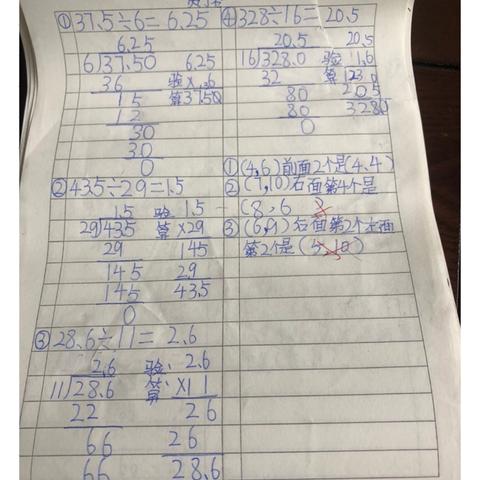 ①37.5÷6=6.25
6.25
6)37.50 6.25
36 验 ×.6
15 算 37.50
12
30
30
0
②435÷29=1.5
1.5 验 1.5
29)435 算 ×29
29 145
145 29
145 43.5
0
③28.6÷11=2.6
2.6 验: 2.6
11)28.6 算: ×11
22 26
66 26
66 28.6
④328÷16=20.5
20.5 20.5
16)328.0 验 1.6
32 算 1230
80 205
80 3280
0
①(4,6)前面2个是(4.4)
②(7,10)右面第4个是
(8.6
③(6,9)右面第2个左面
第2个是(